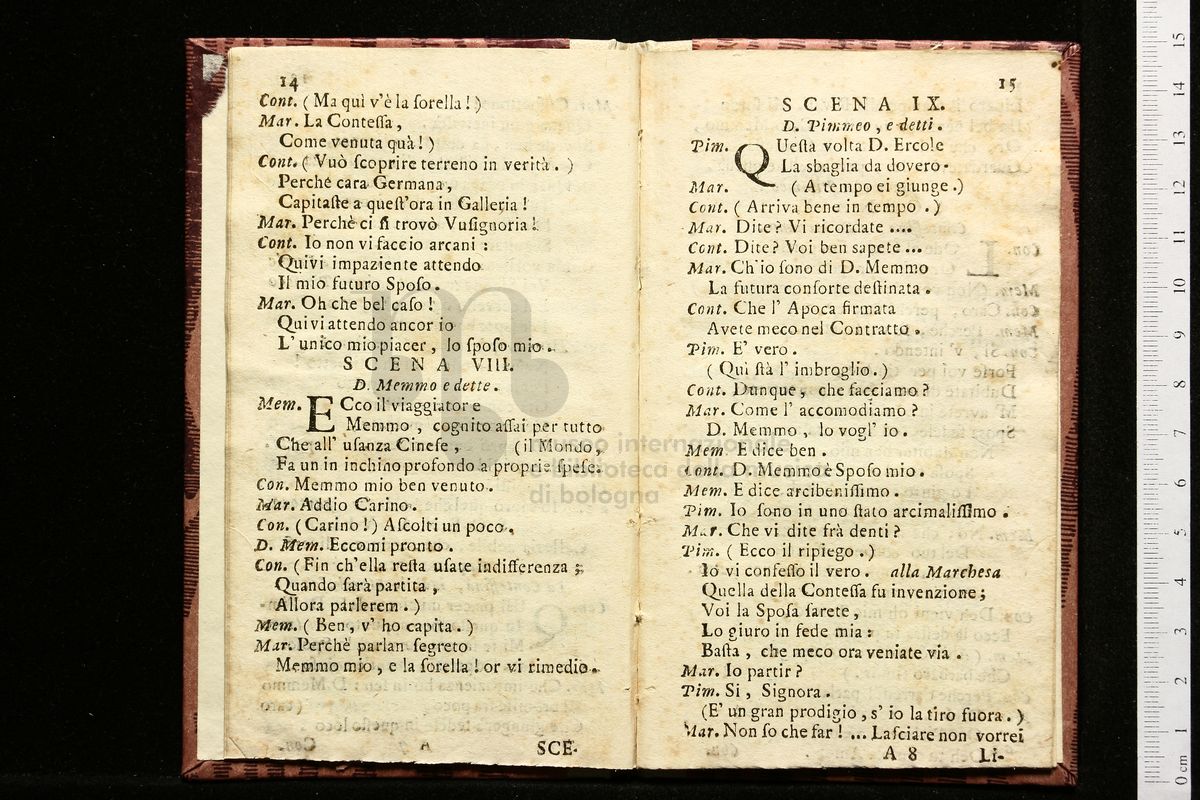 14
Cont. ( Ma quì v'è la ſorella ! )
Mar. La Conteſſa ,
Come venuta quà ! )
Cont. ( Vuò ſcoprire terreno in verità . )
Perchè cara Germana ,
Capitaſte a queſt'ora in Galleria !
Mar. Perchè ci ſi trovò Vuſignoria !
Cont. Io non vi faccio arcani :
Quivi impaziente attendo
Il mio futuro Spoſo .
Mar. Oh che bel caſo !
Quivi attendo ancor io
L' unico mio piacer , lo ſpoſo mio .
SCENA VIII.
D. Memmo e dette .
Mem. ECco il viaggiatore
Memmo , cognito aſſai per tutto
Che all' uſanza Cineſe , (il Mondo,
Fa un in inchino profondo a proprie ſpeſe.
Con. Memmo mio ben venuto .
Mar. Addio Carino .
Con. (Carino ! ) Aſcolti un poco .
D. Mem. Eccomi pronto .
Con. (Fin ch'ella reſta uſate indifferenza ;
Quando ſarà partita ,
Allora parlerem . )
Mem. ( Ben , v' ho capita . )
Mar. Perchè parlan ſegreto
Memmo mio , e la ſorella ! or vi rimedio .
SCE-
15
SCENA IX.
D. Pimmeo , e detti .
Pim. QUeſta volta D. Ercole
La sbaglia da dovero .
Mar. ( A tempo ei giunge .)
Cont. ( Arriva bene in tempo . )
Mar. Dite ? Vi ricordate ....
Cont. Dite ? Voi ben sapete ...
Mar. Ch'io ſono di D. Memmo
La futura conſorte deſtinata .
Cont. Che l' Apoca firmata
Avete meco nel Contratto .
Pim. E' vero .
( Quì ſtà l' imbroglio . )
Cont. Dunque , che facciamo ?
Mar. Come l' accomodiamo ?
D. Memmo , lo vogl' io .
Mem E dice ben .
Cont. D. Memmo è Spoſo mio .
Mem. E dice arcibeniſſimo .
Pim. Io ſono in uno ſtato arcimaliſſimo .
Mar. Che vi dite frà denti ?
Pim. ( Ecco il ripiego . )
Io vi confeſſo il vero . alla Marcheſa
Quella della Conteſſa fu invenzione ;
Voi la Spoſa ſarete ,
Lo giuro in fede mia :
Baſta , che meco ora veniate via .
Mar. Io partir ?
Pim. Si , Signora .
(E' un gran prodigio , s' io la tiro fuora . )
Mar. Non ſo che far ! ... Laſciare non vorrei
A 8 Li-
museo internazionale
e biblioteca della musica
di bologna
0 cm 1 2 3 4 5 6 7 8 9 10 11 12 13 14 15